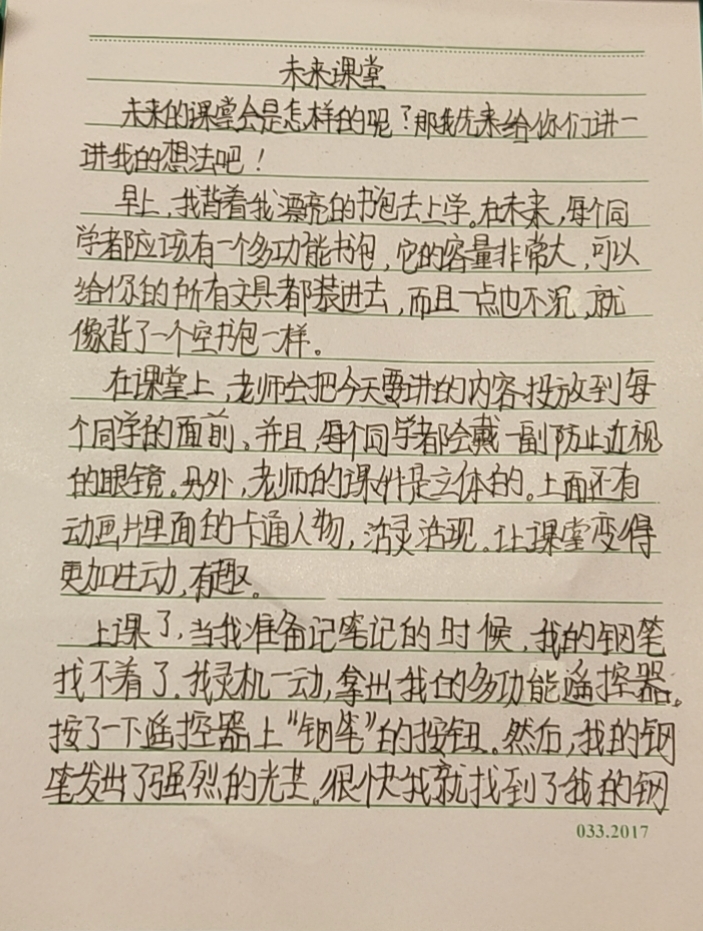 未来课堂
未来的课堂会是怎样的呢？那我先来给你们讲一
讲我的想法吧！
早上，我背着我漂亮的书包去上学。在未来，每个同
学都应该有一个多功能书包，它的容量非常大，可以
给你的所有文具都装进去，而且一点也不沉，就
像背了一个空书包一样。
在课堂上，老师会把今天要讲的内容投放到每
个同学的面前。并且，每个同学都会戴一副防止近视
的眼镜。另外，老师的课件是立体的。上面还有
动画片里面的卡通人物，活灵活现。让课堂变得
更加生动，有趣。
上课了，当我准备记笔记的时候，我的钢笔
找不着了。我灵机一动，拿出我的多功能遥控器。
按了一下遥控器上“钢笔”的按钮。然后，我的钢
笔发出了强烈的光芒。很快我就找到了我的钢
033.2017